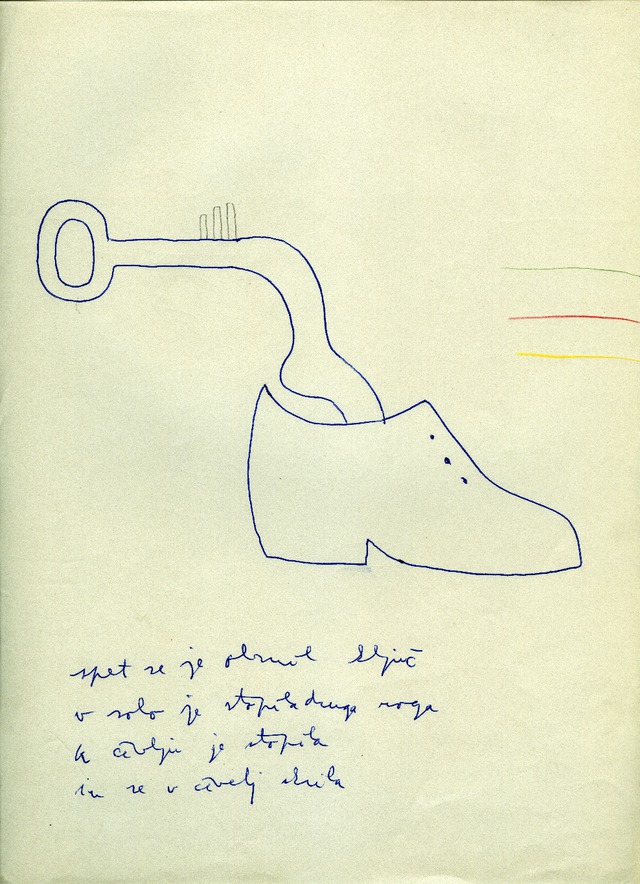 spet se je obrnil ključ
v sobo je stopila druga noga
k čevlju je stopila
in se v čevelj skrila